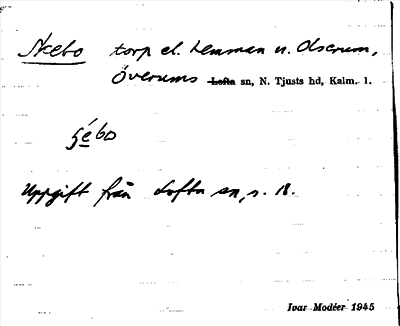 torp el. hemman u. Olserum,
Överums Lofta sn, N. Tjusts hd, Kalm. l.
Uppgift från Lofta sn, s. 18.
Ivar Modéer 1945